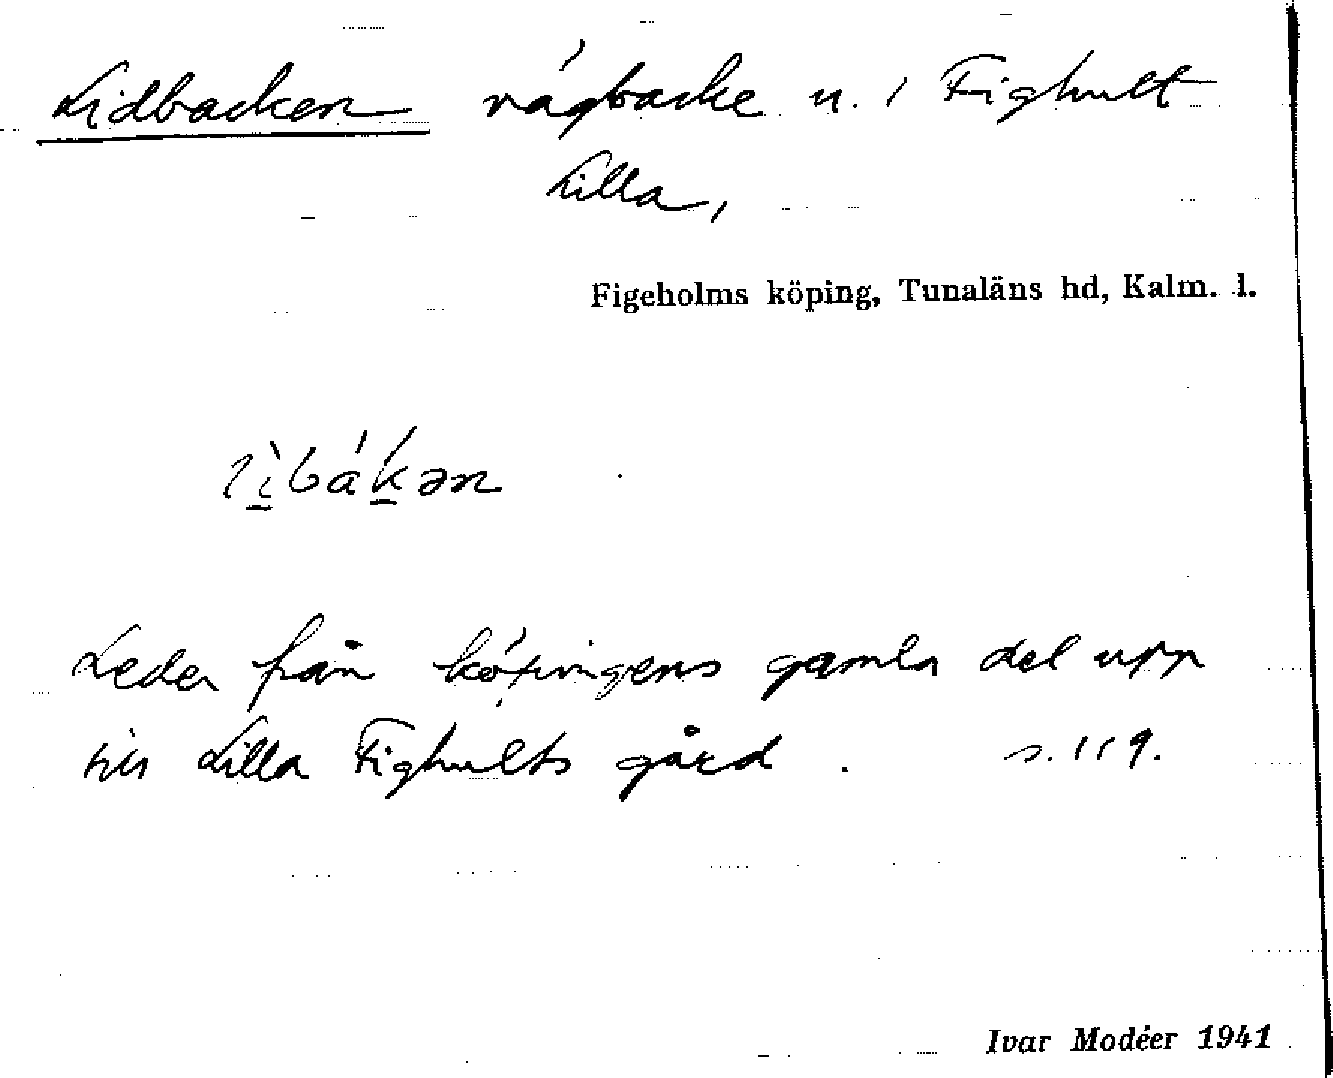 Lidbacken vägbacke n. i Fighult
Lilla,
Figeholms köping, Tunaläns hd, Kalm. l.
lì̱báḵ́ən
Leder från köpingens gamla del upp
till Lilla Fighults gård. s. 119.
Ivar Modéer 1941